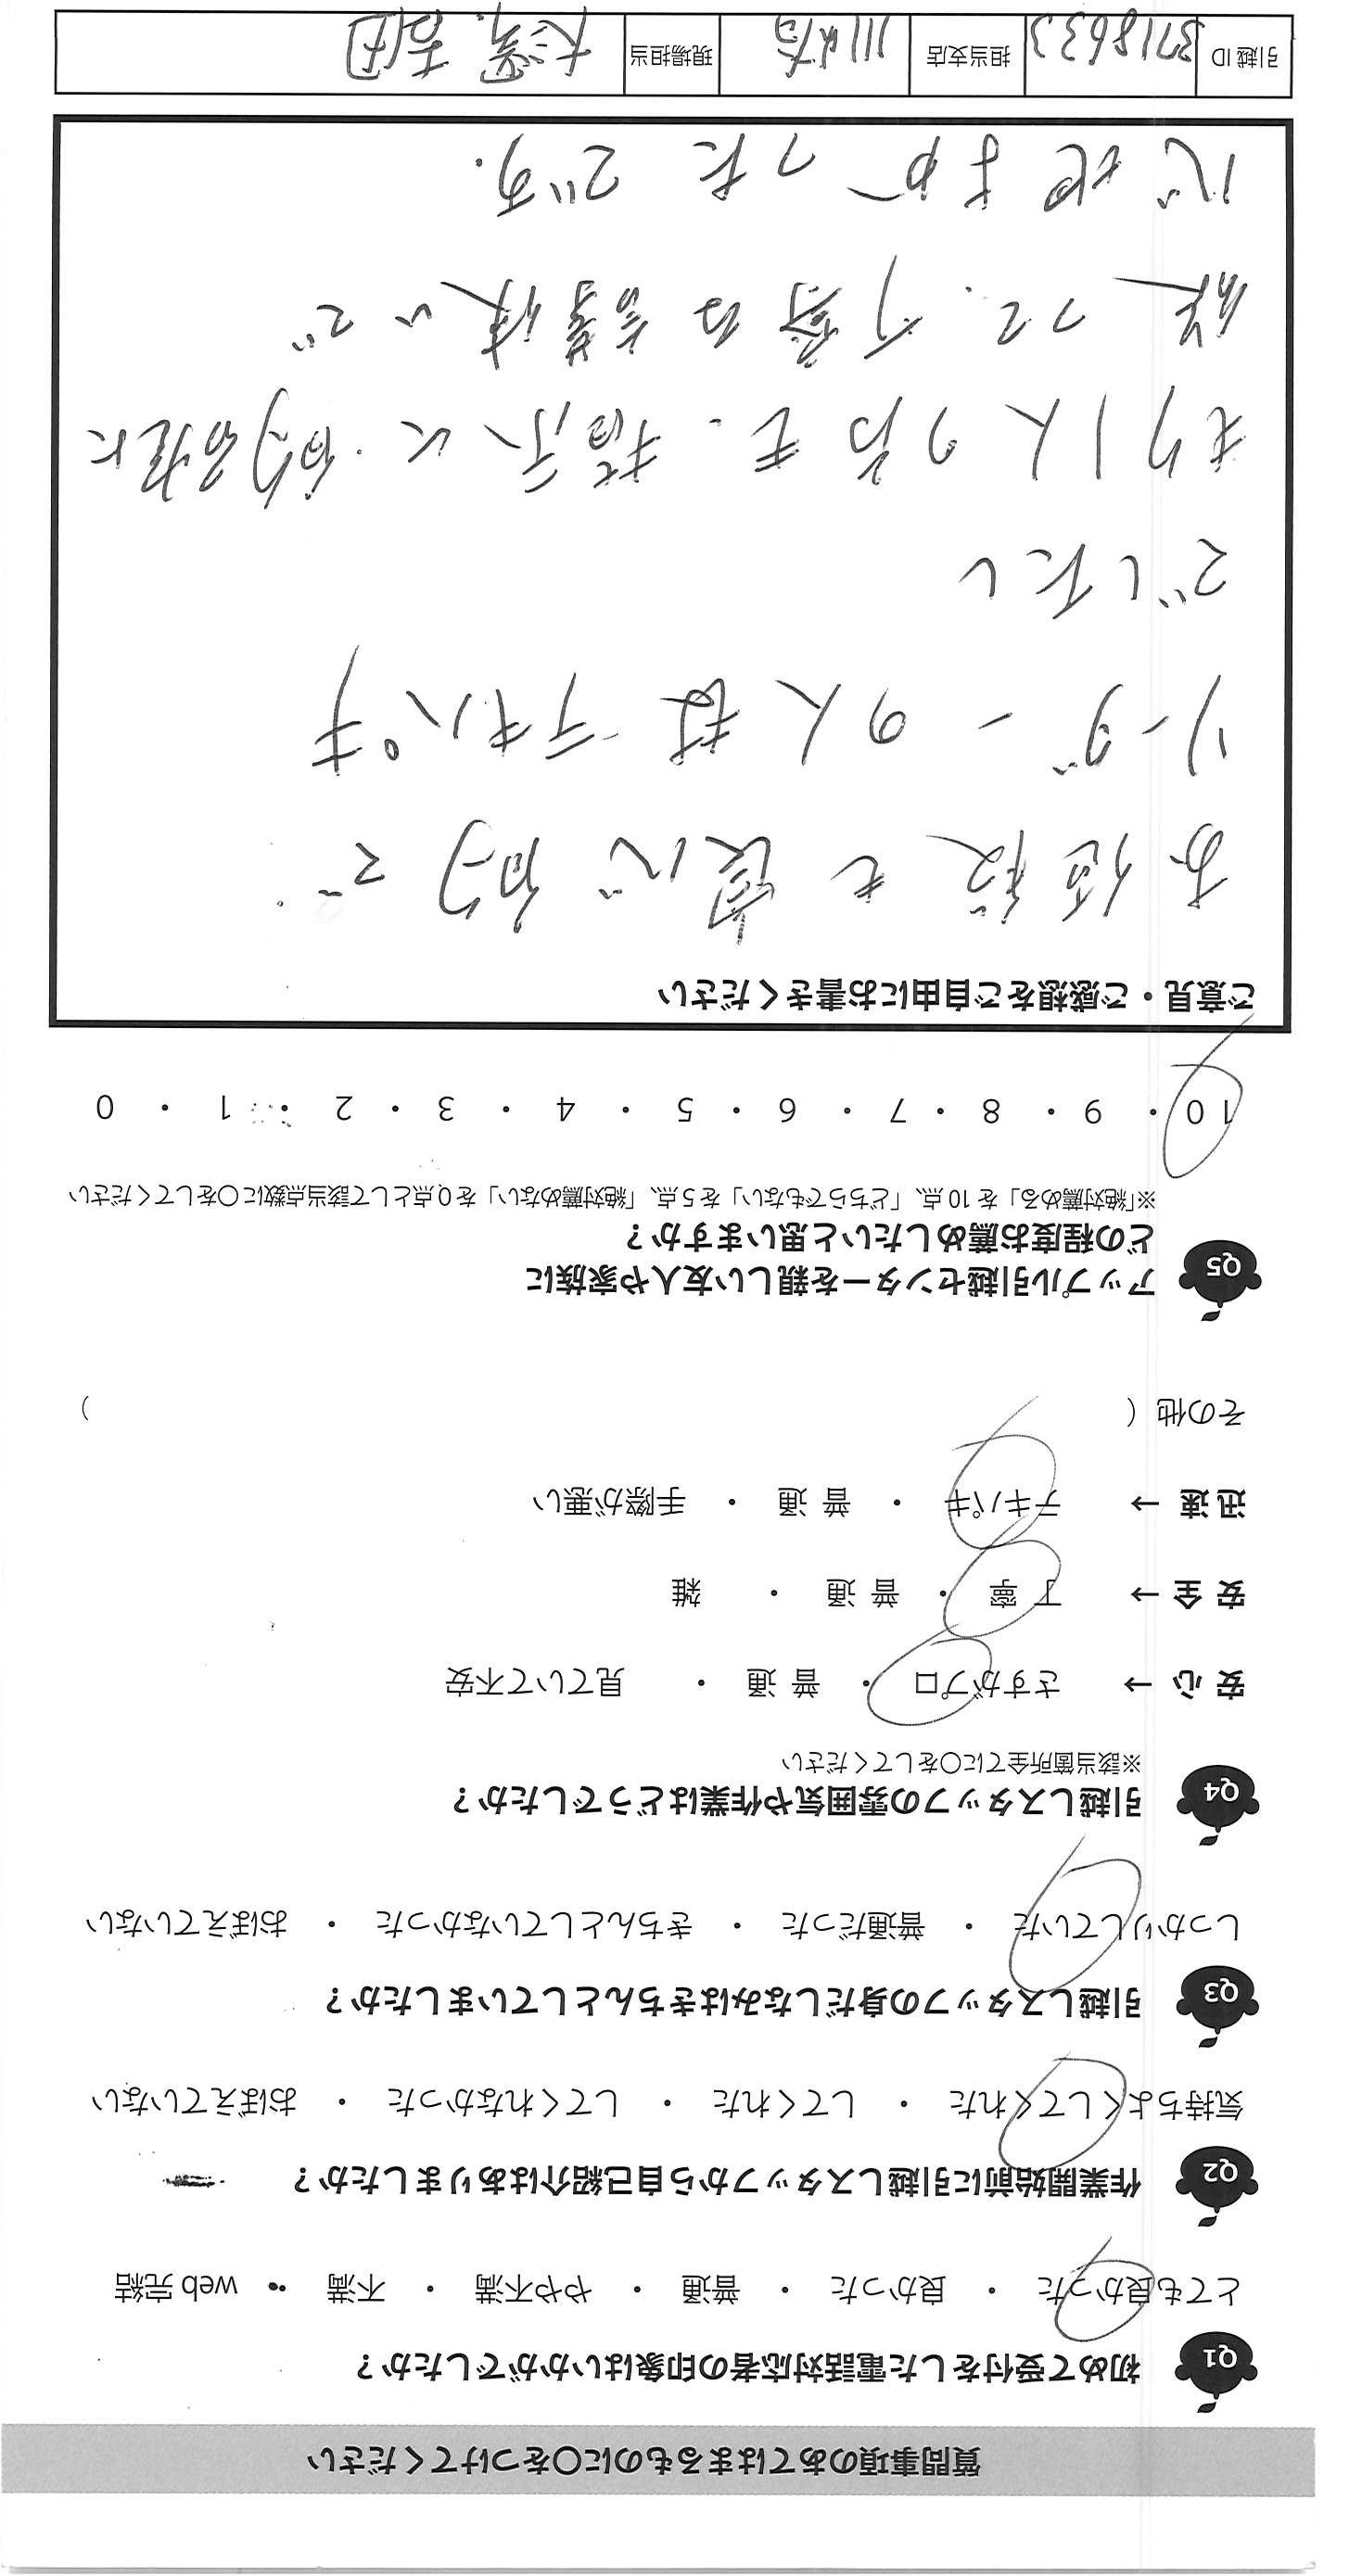 質問事項のあてはまるものに〇をつけてください
Q1 初めて受付をした電話対応者の印象はいかがでしたか？
とても良かった ・ 良かった ・ 普通 ・ やや不満 ・ 不満 ・ web 完結
Q2 作業開始前に引越しスタッフから自己紹介はありましたか？
気持ちよくしてくれた ・ してくれた ・ してくれなかった ・ おぼえていない
Q3 引越しスタッフの身だしなみはきちんとしていましたか？
しっかりしていた ・ 普通だった ・ きちんとしていなかった ・ おぼえていない
Q4 引越しスタッフの雰囲気や作業はどうでしたか？
※該当箇所全てに〇をしてください
安 心 → さすがプロ ・ 普 通 ・ 見ていて不安
安 全 → 丁 寧 ・ 普 通 ・ 雑
迅 速 → テキパキ ・ 普 通 ・ 手際が悪い
その他（ ）
Q5 アップル引越センターを親しい友人や家族に
どの程度お薦めしたいと思いますか？
※「絶対薦める」を 10 点、「どちらでもない」を 5 点、「絶対薦めない」を 0 点として該当点数に〇をしてください
10 ・ 9 ・ 8 ・ 7 ・ 6 ・ 5 ・ 4 ・ 3 ・ 2 ・ 1 ・ 0
ご意見・ご感想をご自由にお書きください
お値段も良心的で
リーダーの人はテキパキ
でしたし
もう1人の方も、指示に的確に
従って、丁寧な言葉使いで
心地よかったです.
引越 ID 3718633 担当支店 川崎 現場担当 大澤. 吉田